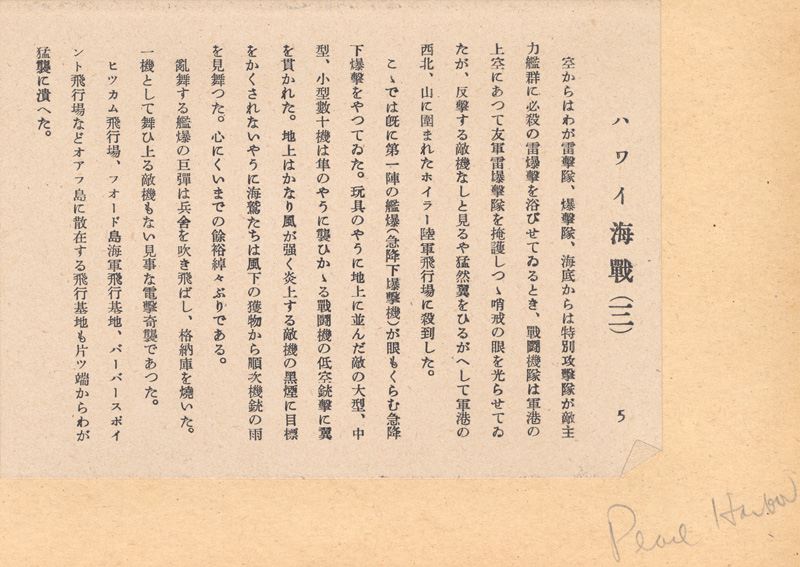 ハワイ海戰(三)
5
空からはわが雷擊隊、爆擊隊、海底からは特別攻擊隊が敵主
力艦群に必殺の雷爆擊を浴びせてゐるとき、戰鬪機隊は軍港の
上空にあつて友軍雷爆擊隊を掩護しつゝ哨戒の眼を光らせてゐ
たが、反擊する敵機なしと見るや猛然翼をひるがへして軍港の
西北、山に圍まれたホイラー陸軍飛行場に殺到した。
こゝでは旣に第一陣の艦爆(急降下爆擊機)が眼もくらむ急降
下爆擊をやつてゐた。玩具のやうに地上に並んだ敵の大型、中
型、小型數十機は隼のやうに襲ひかゝる戰鬪機の低空銃擊に翼
を貫かれた。地上はかなり風が强く炎上する敵機の黑煙に目標
をかくされないやうに海鷲たちは風下の獲物から順次機銃の雨
を見舞つた。心にくいまでの餘裕綽々ぶりである。
亂舞する艦爆の巨彈は兵舍を吹き飛ばし、格納庫を燒いた。
一機として舞ひ上る敵機もない見事な電擊奇襲であつた。
ヒツカム飛行場、フオード島海軍飛行基地、バーバースポイ
ント飛行場などオアフ島に散在する飛行基地も片ツ端からわが
猛襲に潰へた。
Pearl Harbor